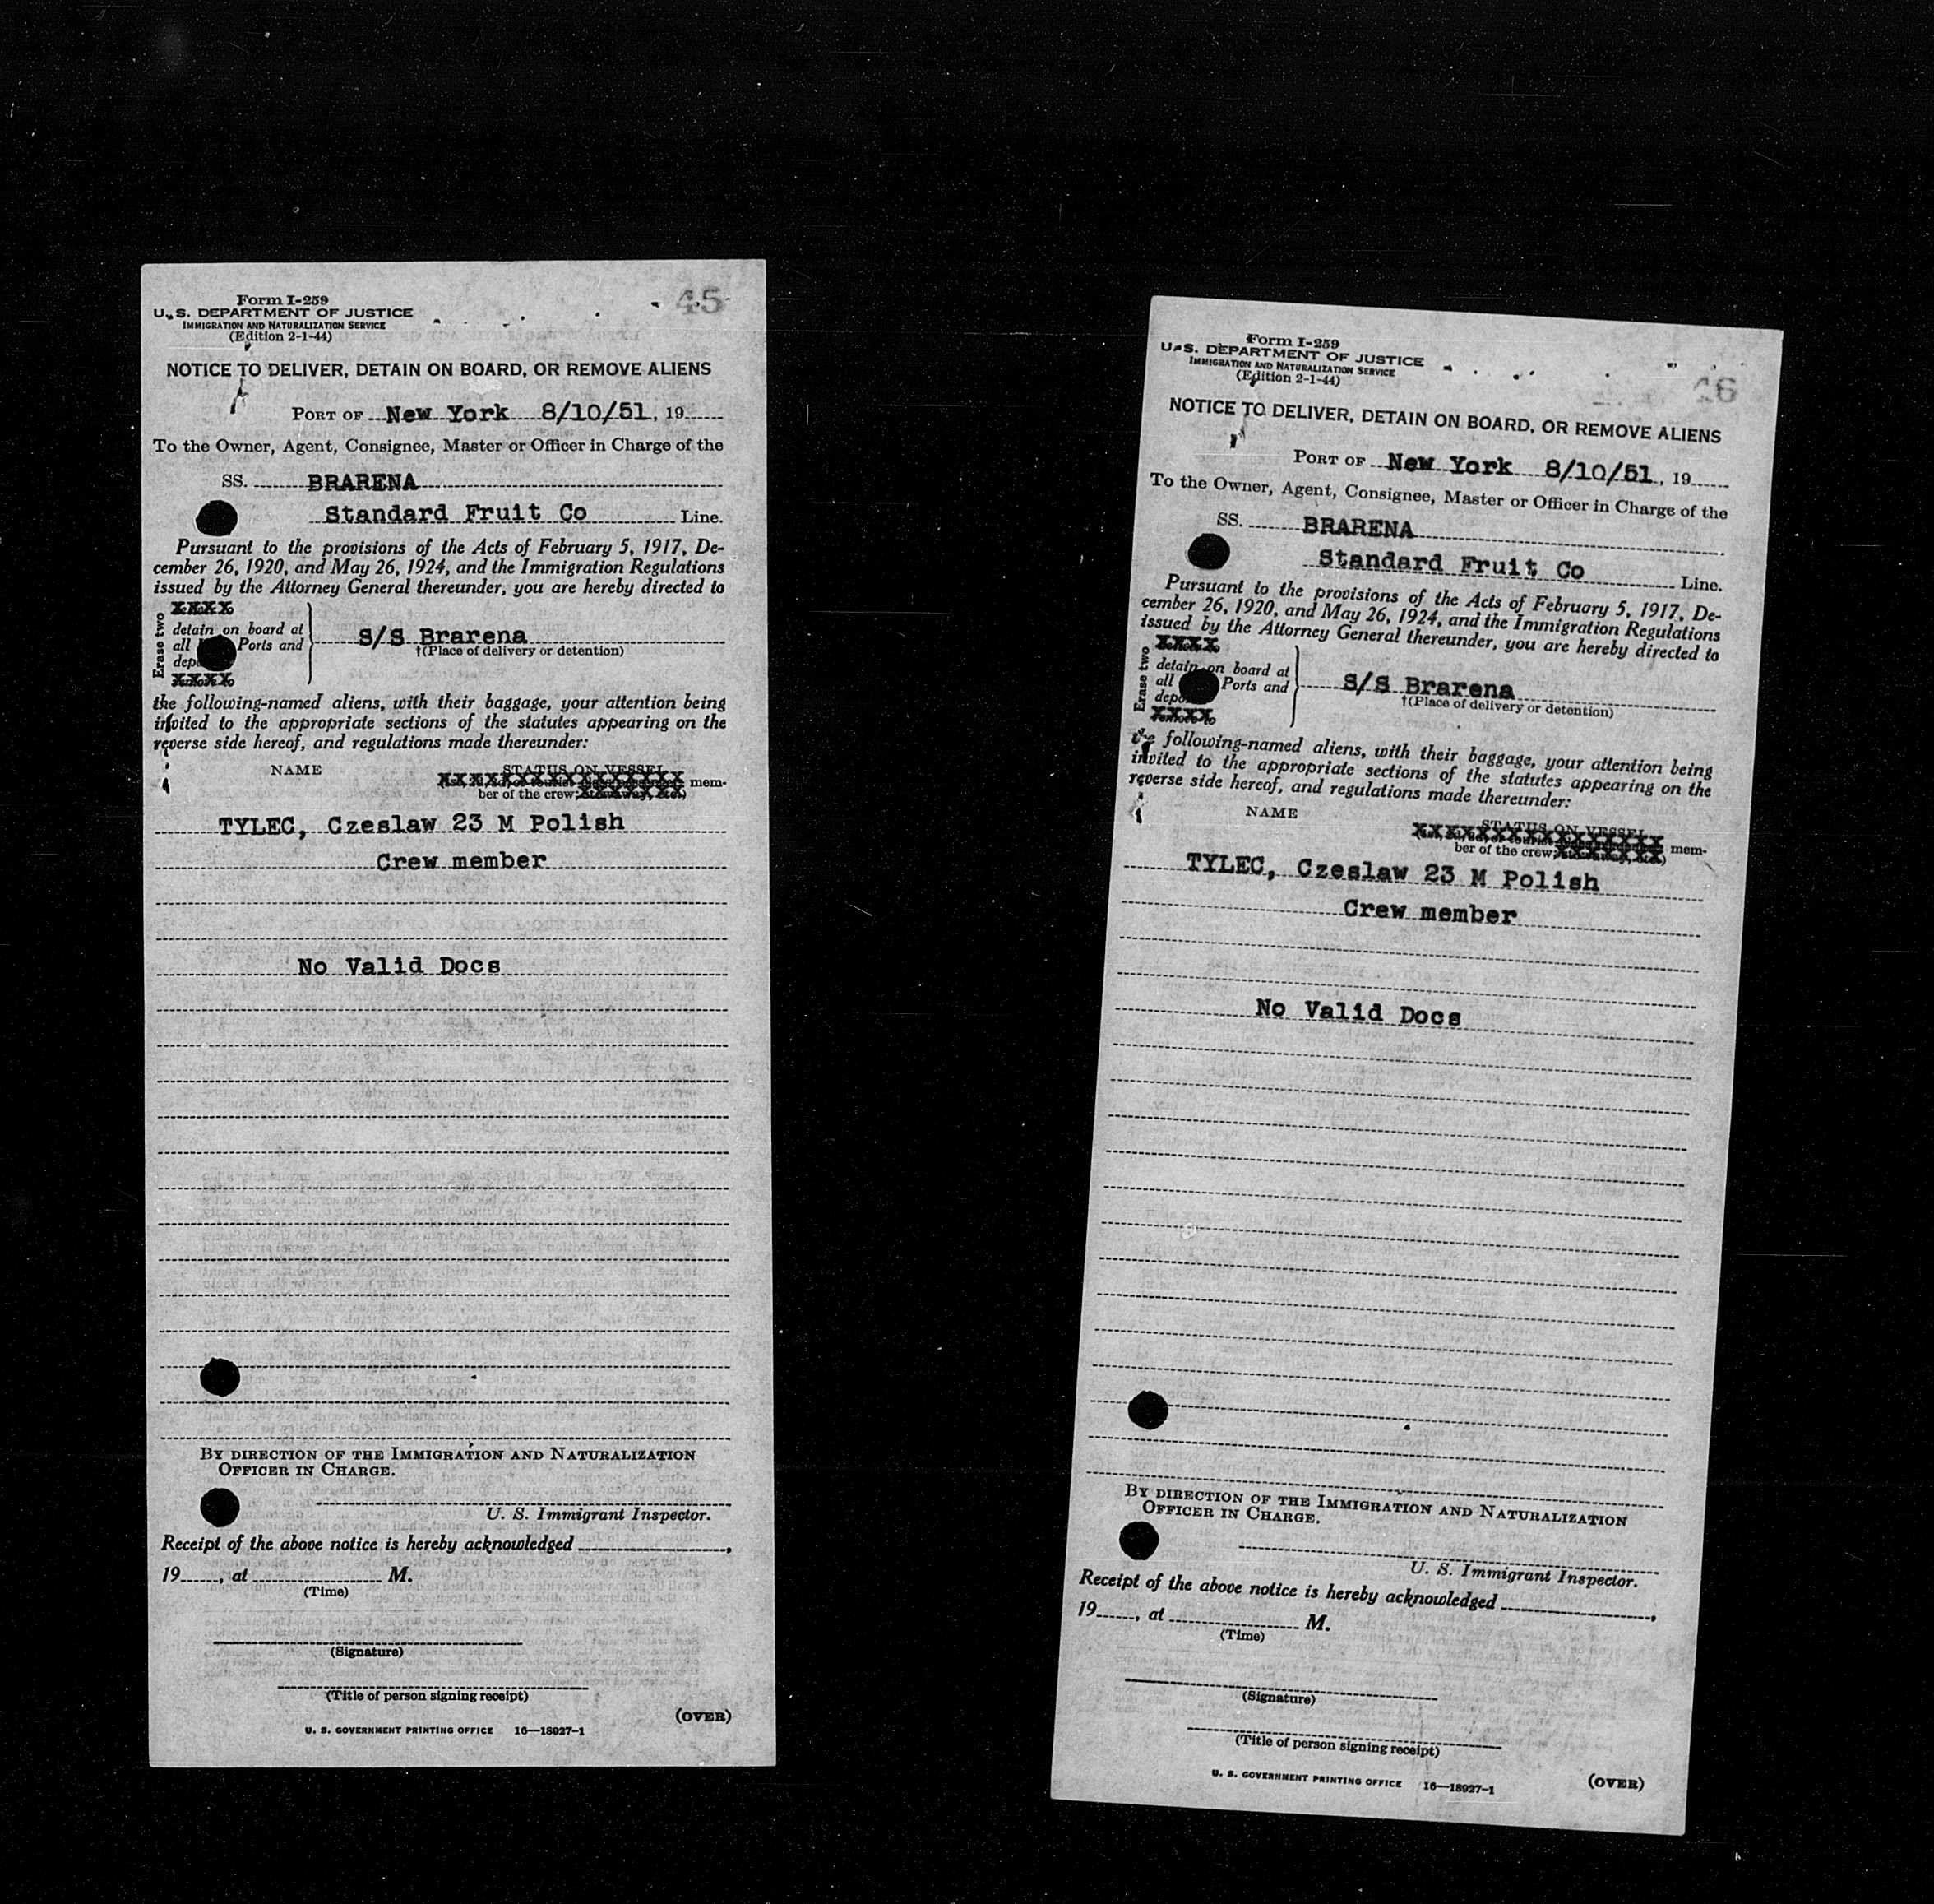 45
Form I-259
U. S. DEPARTMENT OF JUSTICE
IMMIGRATION AND NATURALIZATION SERVICE
(Edition 2-1-44)
NOTICE TO DELIVER, DETAIN ON BOARD, OR REMOVE ALIENS
PORT OF New York 8/10/51, 19
To the Owner, Agent, Consignee, Master or Officer in Charge of the
SS. BRARENA
Standard Fruit Co Line.
Pursuant to the provisions of the Acts of February 5, 1917, De-
cember 26, 1920, and May 26, 1924, and the Immigration Regulations
issued by the Attorney General thereunder, you are hereby directed to
Erase two
XXXX
detain on board at
all Ports and
XXXX
S/S Brarena
†(Place of delivery or detention)
the following-named aliens, with their baggage, your attention being
invited to the appropriate sections of the statutes appearing on the
reverse side hereof, and regulations made thereunder:
NAME STATUS ON VESSEL
mem-
ber of the crew
TYLEC, Czeslaw 23 M Polish
Crew member
No Valid Docs
BY DIRECTION OF THE IMMIGRATION AND NATURALIZATION
OFFICER IN CHARGE.
U. S. Immigrant Inspector.
Receipt of the above notice is hereby acknowledged ,
19 , at M.
(Time)
(Signature)
(Title of person signing receipt)
(OVER)
U. S. GOVERNMENT PRINTING OFFICE 16—18927-1
46
Form I-259
U. S. DEPARTMENT OF JUSTICE
IMMIGRATION AND NATURALIZATION SERVICE
(Edition 2-1-44)
NOTICE TO DELIVER, DETAIN ON BOARD, OR REMOVE ALIENS
PORT OF New York 8/10/51, 19
To the Owner, Agent, Consignee, Master or Officer in Charge of the
SS. BRARENA
Standard Fruit Co Line.
Pursuant to the provisions of the Acts of February 5, 1917, De-
cember 26, 1920, and May 26, 1924, and the Immigration Regulations
issued by the Attorney General thereunder, you are hereby directed to
Erase two
XXXX
detain on board at
all Ports and
XXXX
S/S Brarena
†(Place of delivery or detention)
the following-named aliens, with their baggage, your attention being
invited to the appropriate sections of the statutes appearing on the
reverse side hereof, and regulations made thereunder:
NAME STATUS ON VESSEL
mem-
ber of the crew
TYLEC, Czeslaw 23 M Polish
Crew member
No Valid Docs
BY DIRECTION OF THE IMMIGRATION AND NATURALIZATION
OFFICER IN CHARGE.
U. S. Immigrant Inspector.
Receipt of the above notice is hereby acknowledged ,
19 , at M.
(Time)
(Signature)
(Title of person signing receipt)
U. S. GOVERNMENT PRINTING OFFICE 16—18927-1
(OVER)